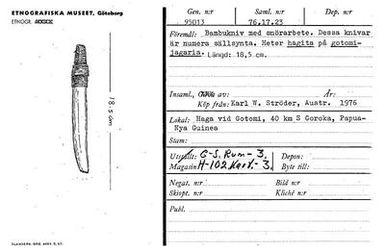 ETNOGRAFISKA MUSEET, Göteborg
ETNOGR.
18.5 cm
Gen. n:r Saml. n:r Dep. n:r
95013 76.17.23
Föremål: Bambukniv med snörarbete. Dessa knivar
är numera sällsynta. Heter hagita på gotomi-
jagaria. Längd: 18,5 cm.
Insaml., År:
Köp från: Karl W. Ströder, Austr. 1976
Lokal: Haga vid Gotomi, 40 km S Goroka, Papua-
Nya Guinea
Stam:
Utställt: G-S. Rum-3. Depon:
Magasin H-102 Kart.-3. Byte till:
Negat. n:r Bild n:r
Skiopt. n:r Kliché n:r
Publ.